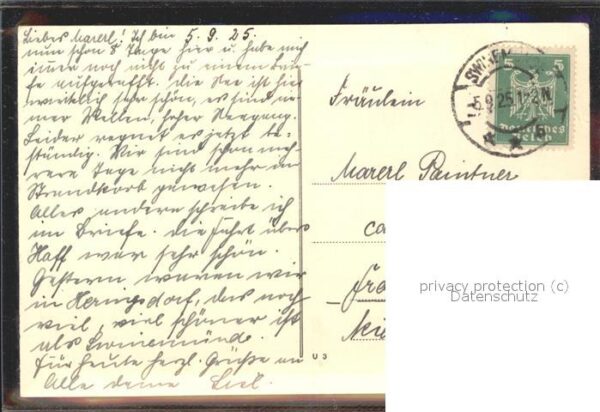 5. 9. 25.
Liebes Marerl! Ich bin
nun schon 8 Tage hier u. habe mich
immer noch nicht zu einem Brie-
fe aufgerafft. Die See ist hier
wirklich sehr schön, es sind im-
mer Wellen, hoher Seegang.
Leider regnet es jetzt be-
ständig. Wir sind schon meh-
rere Tage nicht mehr im
Strandkorb gewesen.
Alles andere schreibe ich
im Briefe. Die Fahrt übers
Haff war sehr schön.
Gestern waren wir
in Heringsdorf, das noch
viel, viel schöner ist
als Swinemünde.
Für heute herzl. Grüße an
Alle deine Liesl.
U 3
SWINEM
5.9.25.1-2N.
5 5
Deutsches
Reich
Fräulein
Marerl Paintner
privacy protection (c)
Datenschutz